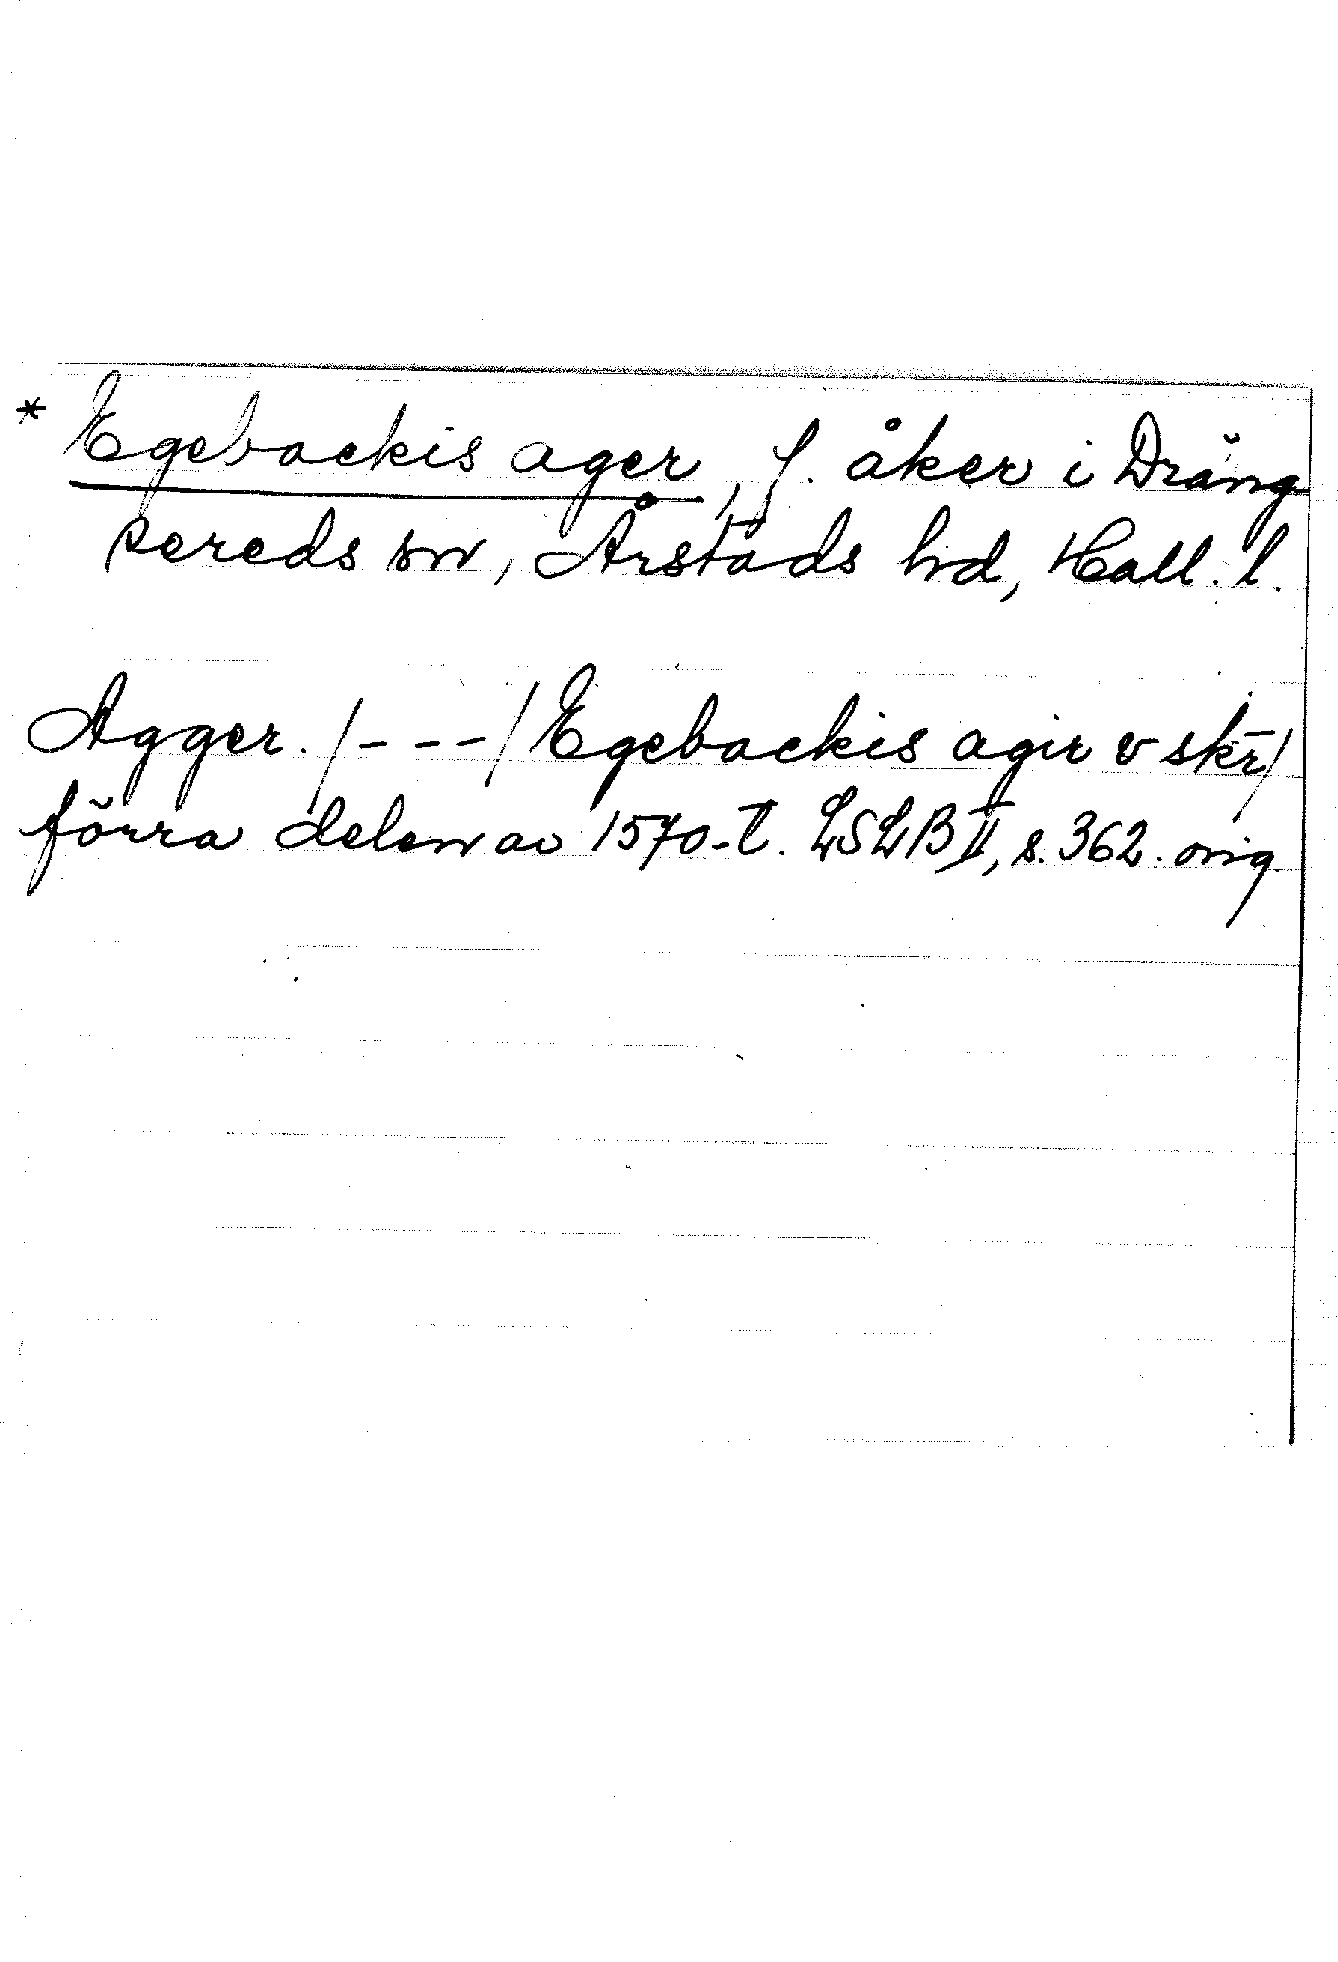 * Egebackis ager, f. åker i Dräng
sereds sn, Årstads hd, Hall. l.
Agger. /---/ Egebackis agir v skr̄/
förra delen av 1570-t. LSLB II, s. 362. orig